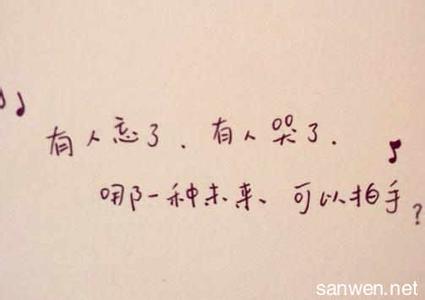 有人忘了．有人哭了．
哪一种未来、可以拍手？
sanwen.net